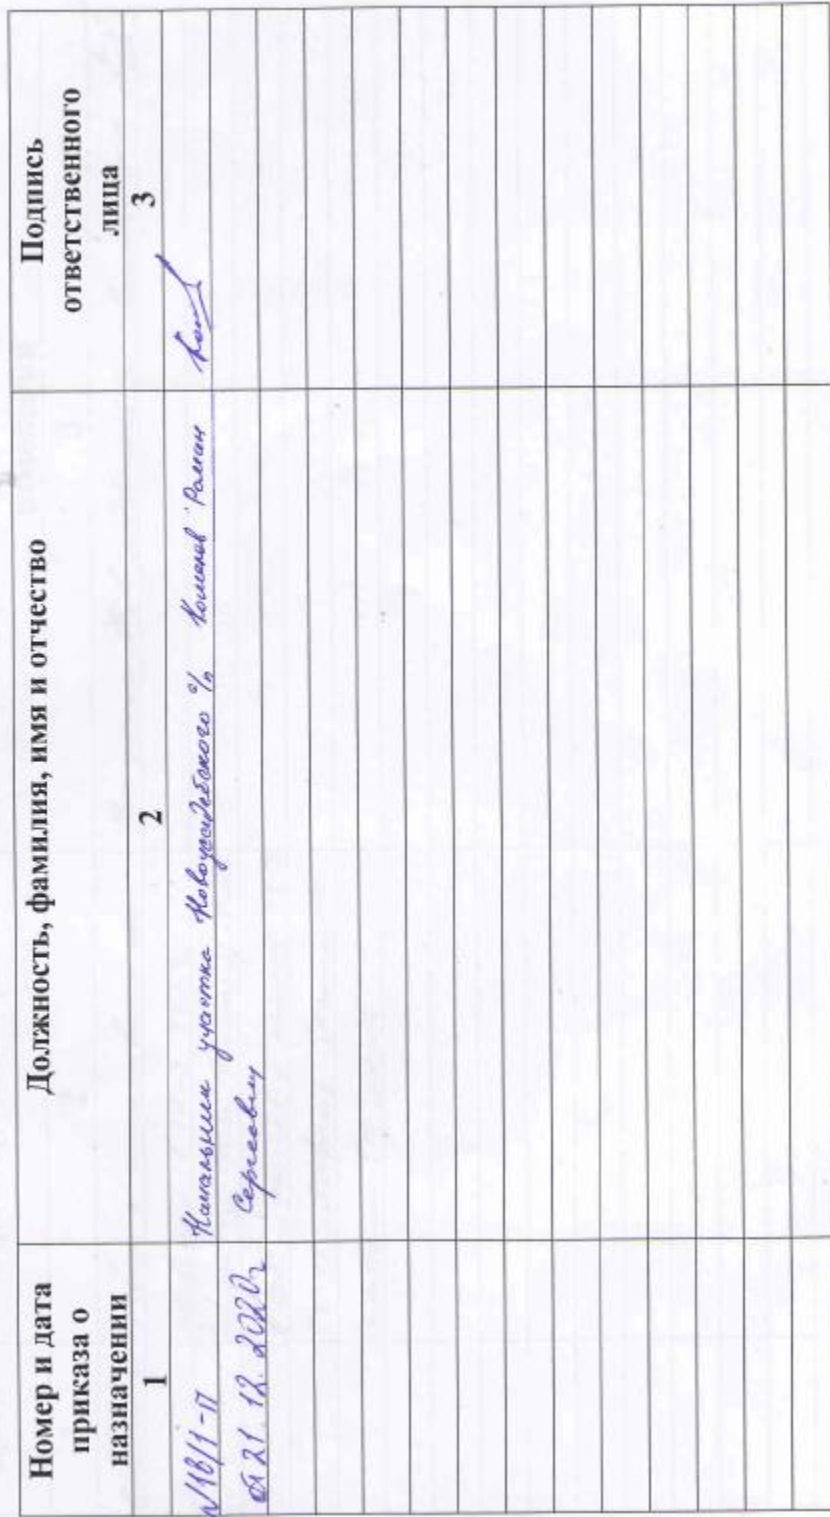 Номер и дата
приказа о
назначении
Должность, фамилия, имя и отчество
Подпись
ответственного
лица
1
2
3
N 18/1-п
Начальник участка Новоусадебского
Романов Роман
от 21.12.2020г
Сергеевич